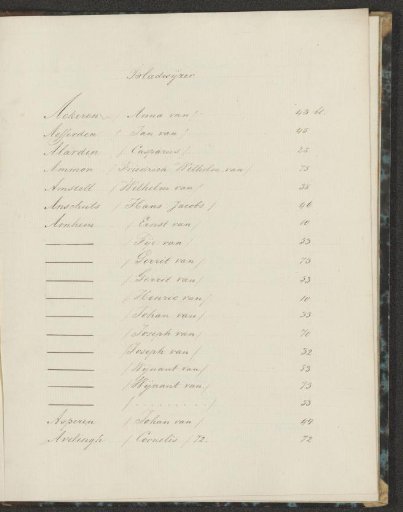 Bladwijzer
Aekeren / Anna van / 43 bl.
Aefferden / Jan van / 45
Alarden / Casparus / 25
Ammon / Friedrich Wilhelm van / 75
Amstell / Wilhelm van / 38
Anschuts / Hans Jacobs / 46
Arnhem / Ernst van / 10
—— / Fye van / 53
—— / Gerrit van / 73
—— / Gerrit van / 53
—— / Henric van / 10
—— / Johan van / 53
—— / Joseph van / 70
—— / Joseph van / 32
—— / Wynant van / 53
—— / Wynant van / 73
—— / .......... / 53
Asperen / Johan van / 44
Avelingh / Cornelis / 72. 72